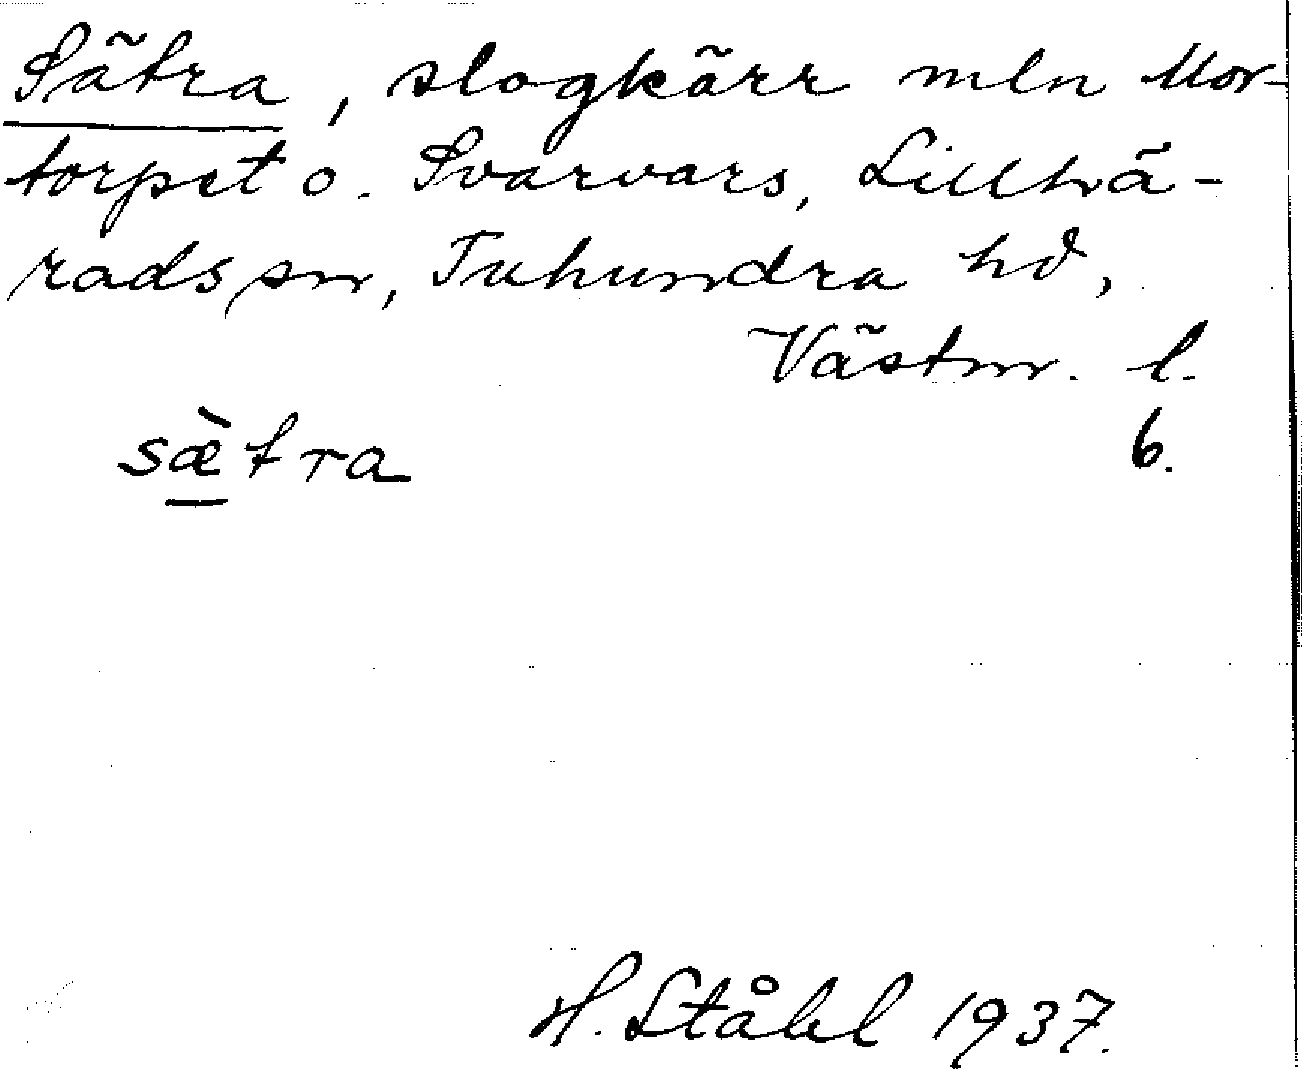 Sätra, slogkärr mln Mor-
torpet o. Svarvars, Lillhä-
rads sn, Tuhundra hd,
Västm. l.
sæ̀tra 6.
H. Ståhl 1937.